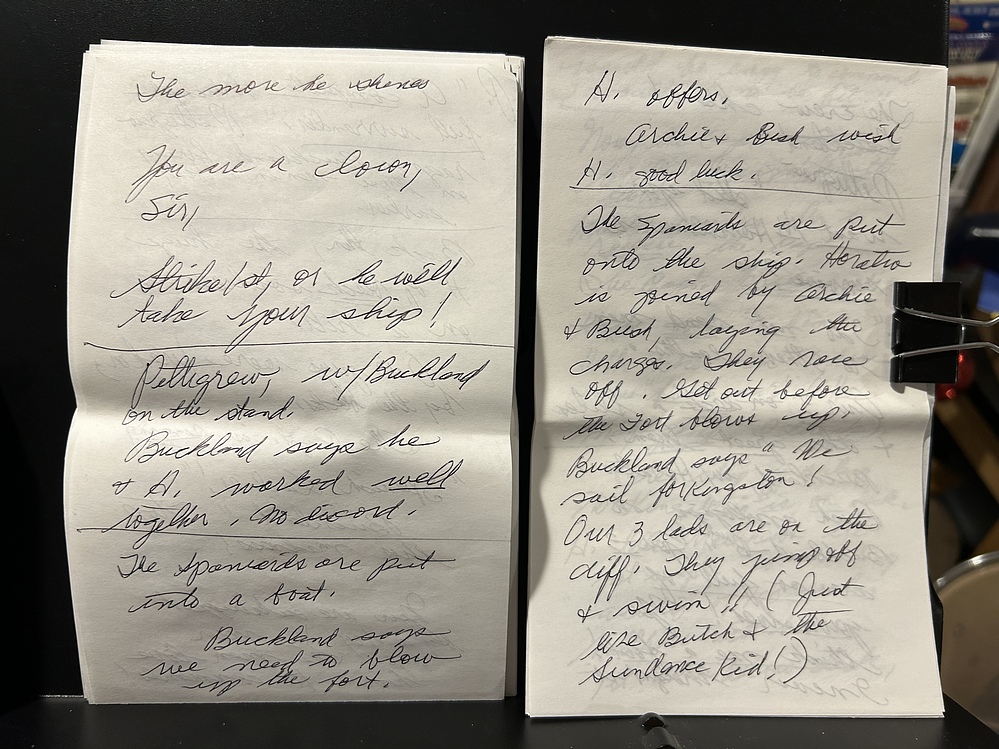 The more he shines
You are a clown,
Sir,
Strike 1st, or he will
take your ship!
Pelligrew, w/Buckland
on the stand.
Buckland says he
& H. worked well
together. No discord.
The Spaniards are put
into a boat.
Buckland says
we need to blow
up the fort.
H. offers.
Archie & Bush wish
H. good luck.
The Spaniards are put
onto the ship. Horatio
is joined by Archie
& Bush, laying the
charges. They race
off. Get out before
the Fort blows up.
Buckland says "We
sail for Kingston!
Our 3 lads are on the
cliff. They jump off
& swim!! (Just
like Butch & the
Sundance Kid!)